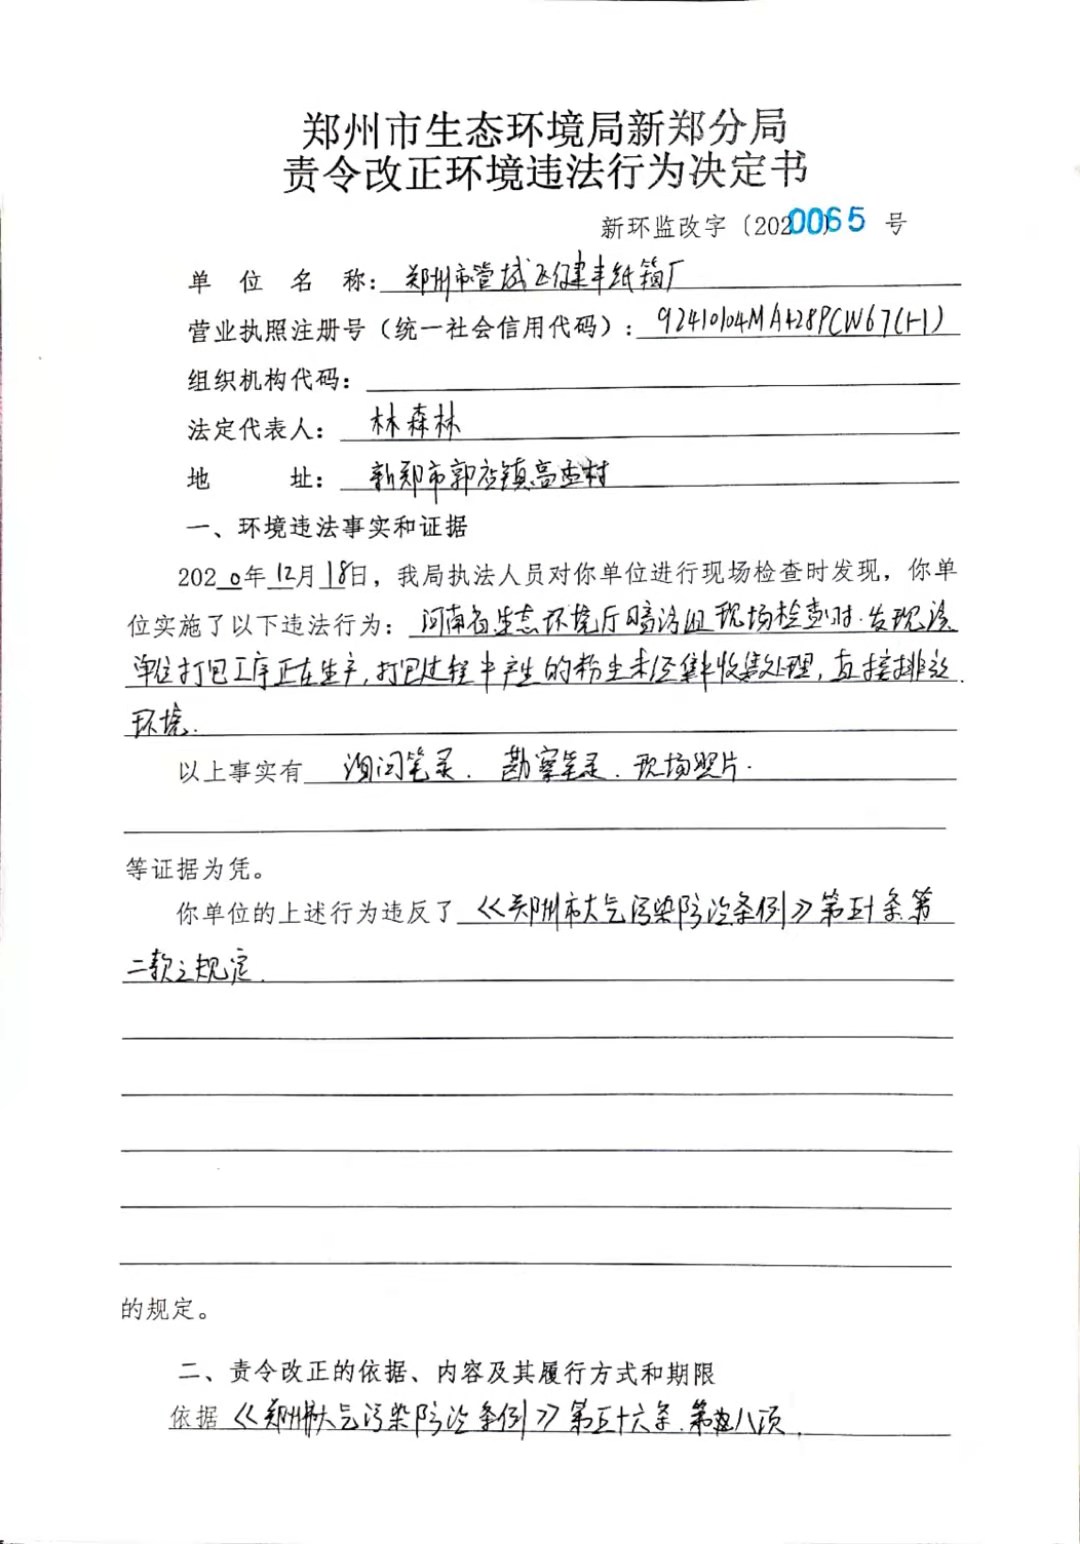 郑州市生态环境局新郑分局
责令改正环境违法行为决定书
新环监改字〔2020065号
单 位 名 称：郑州市管城区健丰纸箱厂
营业执照注册号（统一社会信用代码）：92410104MA428PCW67(1-1)
组织机构代码：
法定代表人：林森林
地 址：新郑市郭店镇高孟村
一、环境违法事实和证据
2020年12月18日，我局执法人员对你单位进行现场检查时发现，你单
位实施了以下违法行为：河南省生态环境厅暗访组现场检查时.发现该
单位打包工序正在生产,打包过程中产生的粉尘未经集中收集处理,直接排放
环境.
以上事实有 询问笔录. 勘察笔录. 现场照片.
等证据为凭。
你单位的上述行为违反了《郑州市大气污染防治条例》第五十条第
二款之规定.
的规定。
二、责令改正的依据、内容及其履行方式和期限
依据《郑州市大气污染防治条例》第五十六条.第八项.